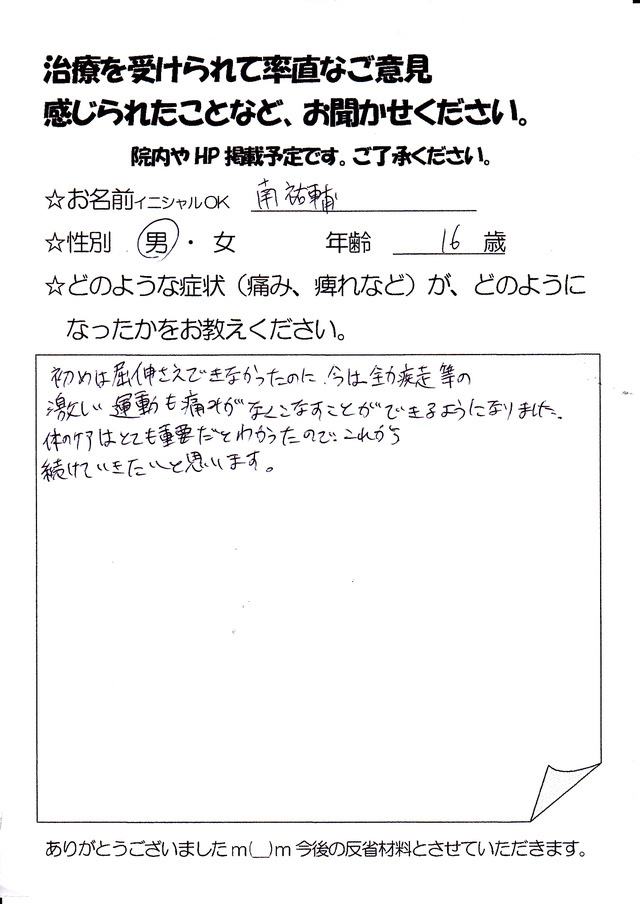 治療を受けられて率直なご意見
感じられたことなど、お聞かせください。
院内やHP掲載予定です。ご了承ください。
☆お名前イニシャルOK 南祐輔
☆性別 男・女 年齢 16 歳
☆どのような症状（痛み、痺れなど）が、どのように
なったかをお教えください。
初めは屈伸さえできなかったのに、今は全力疾走等の
激しい運動も痛みがなくこなすことができるようになりました。
体のケアはとても重要だとわかったので、これから
続けていきたいと思います。
ありがとうございましたm(__)m今後の反省材料とさせていただきます。